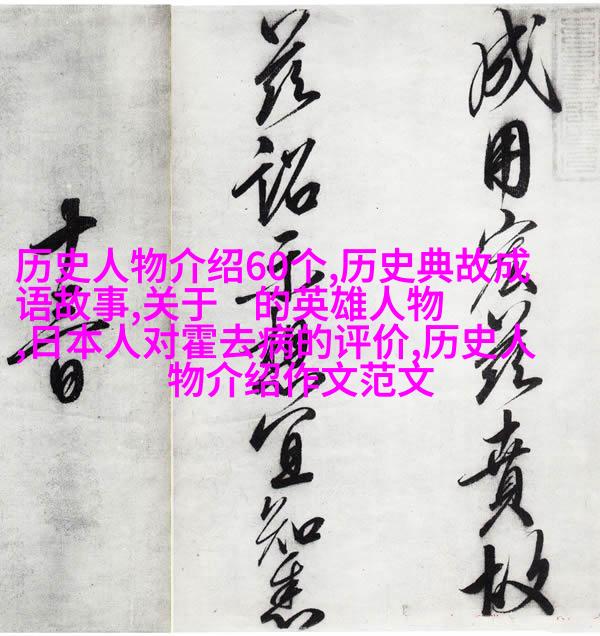 成用宏茲賁故
茲詔示想宜知悉
日
历史人物介绍60个,历史典故成
语故事,关于 的英雄人物
,日本人对霍去病的评价,历史人
物介绍作文范文